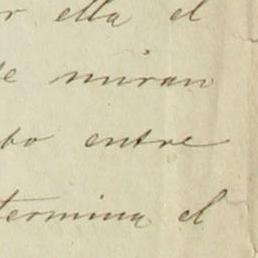 r ella el
se miran
bo entre
termina el